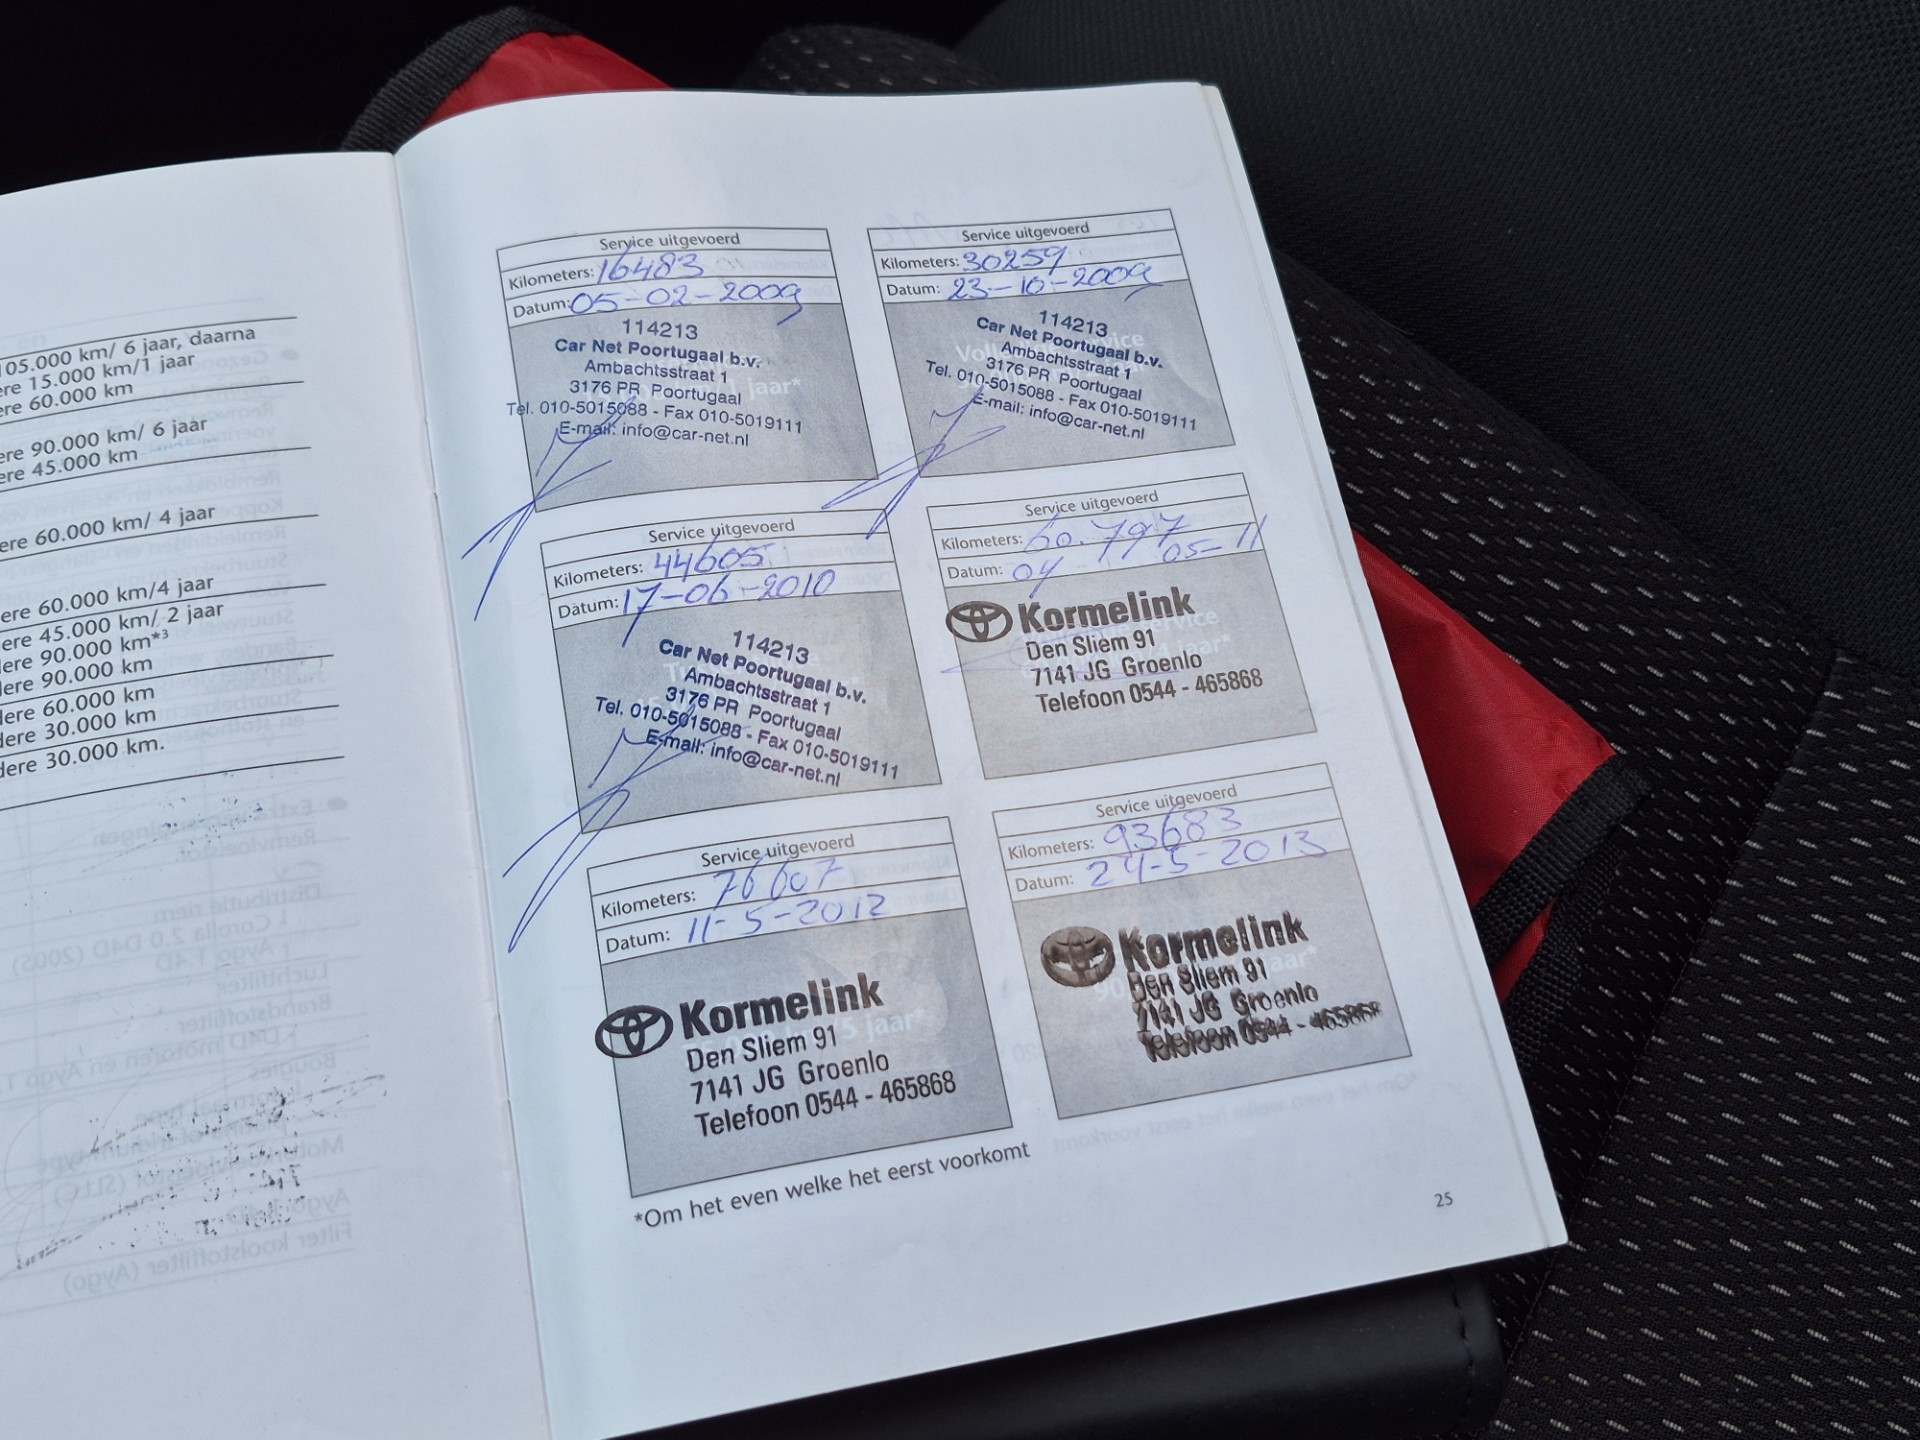 105.000 km/ 6 jaar, daarna
ere 15.000 km/1 jaar
ere 60.000 km
ere 90.000 km/ 6 jaar
ere 45.000 km
ere 60.000 km/ 4 jaar
ere 60.000 km/4 jaar
ere 45.000 km/ 2 jaar
dere 90.000 km*3
dere 90.000 km
dere 60.000 km
dere 30.000 km
dere 30.000 km.
Service uitgevoerd
Kilometers: 16483
Datum: 05-02-2009
114213
Car Net Poortugaal b.v.
Ambachtsstraat 1
3176 PR Poortugaal
1 jaar*
Tel. 010-5015088 - Fax 010-5019111
E-mail: info@car-net.nl
Service uitgevoerd
Kilometers: 30259
Datum: 23-10-2009
114213
Car Net Poortugaal b.v.
Ambachtsstraat 1
3176 PR Poortugaal
Tel. 010-5015088 - Fax 010-5019111
E-mail: info@car-net.nl
Service uitgevoerd
Kilometers: 44605
Datum: 17-06-2010
114213
Car Net Poortugaal b.v.
Ambachtsstraat 1
3176 PR Poortugaal
Tel. 010-5015088 - Fax 010-5019111
E-mail: info@car-net.nl
Service uitgevoerd
Kilometers: 60.797
Datum: 04 05-11
Kormelink
Den Sliem 91
7141 JG Groenlo
Telefoon 0544 - 465868
Service uitgevoerd
Kilometers: 76607
Datum: 11-5-2012
Kormelink
Den Sliem 91
7141 JG Groenlo
Telefoon 0544 - 465868
Service uitgevoerd
Kilometers: 93683
Datum: 24-5-2013
Kormelink
Den Sliem 91
7141 JG Groenlo
Telefoon 0544 - 465868
*Om het even welke het eerst voorkomt
25